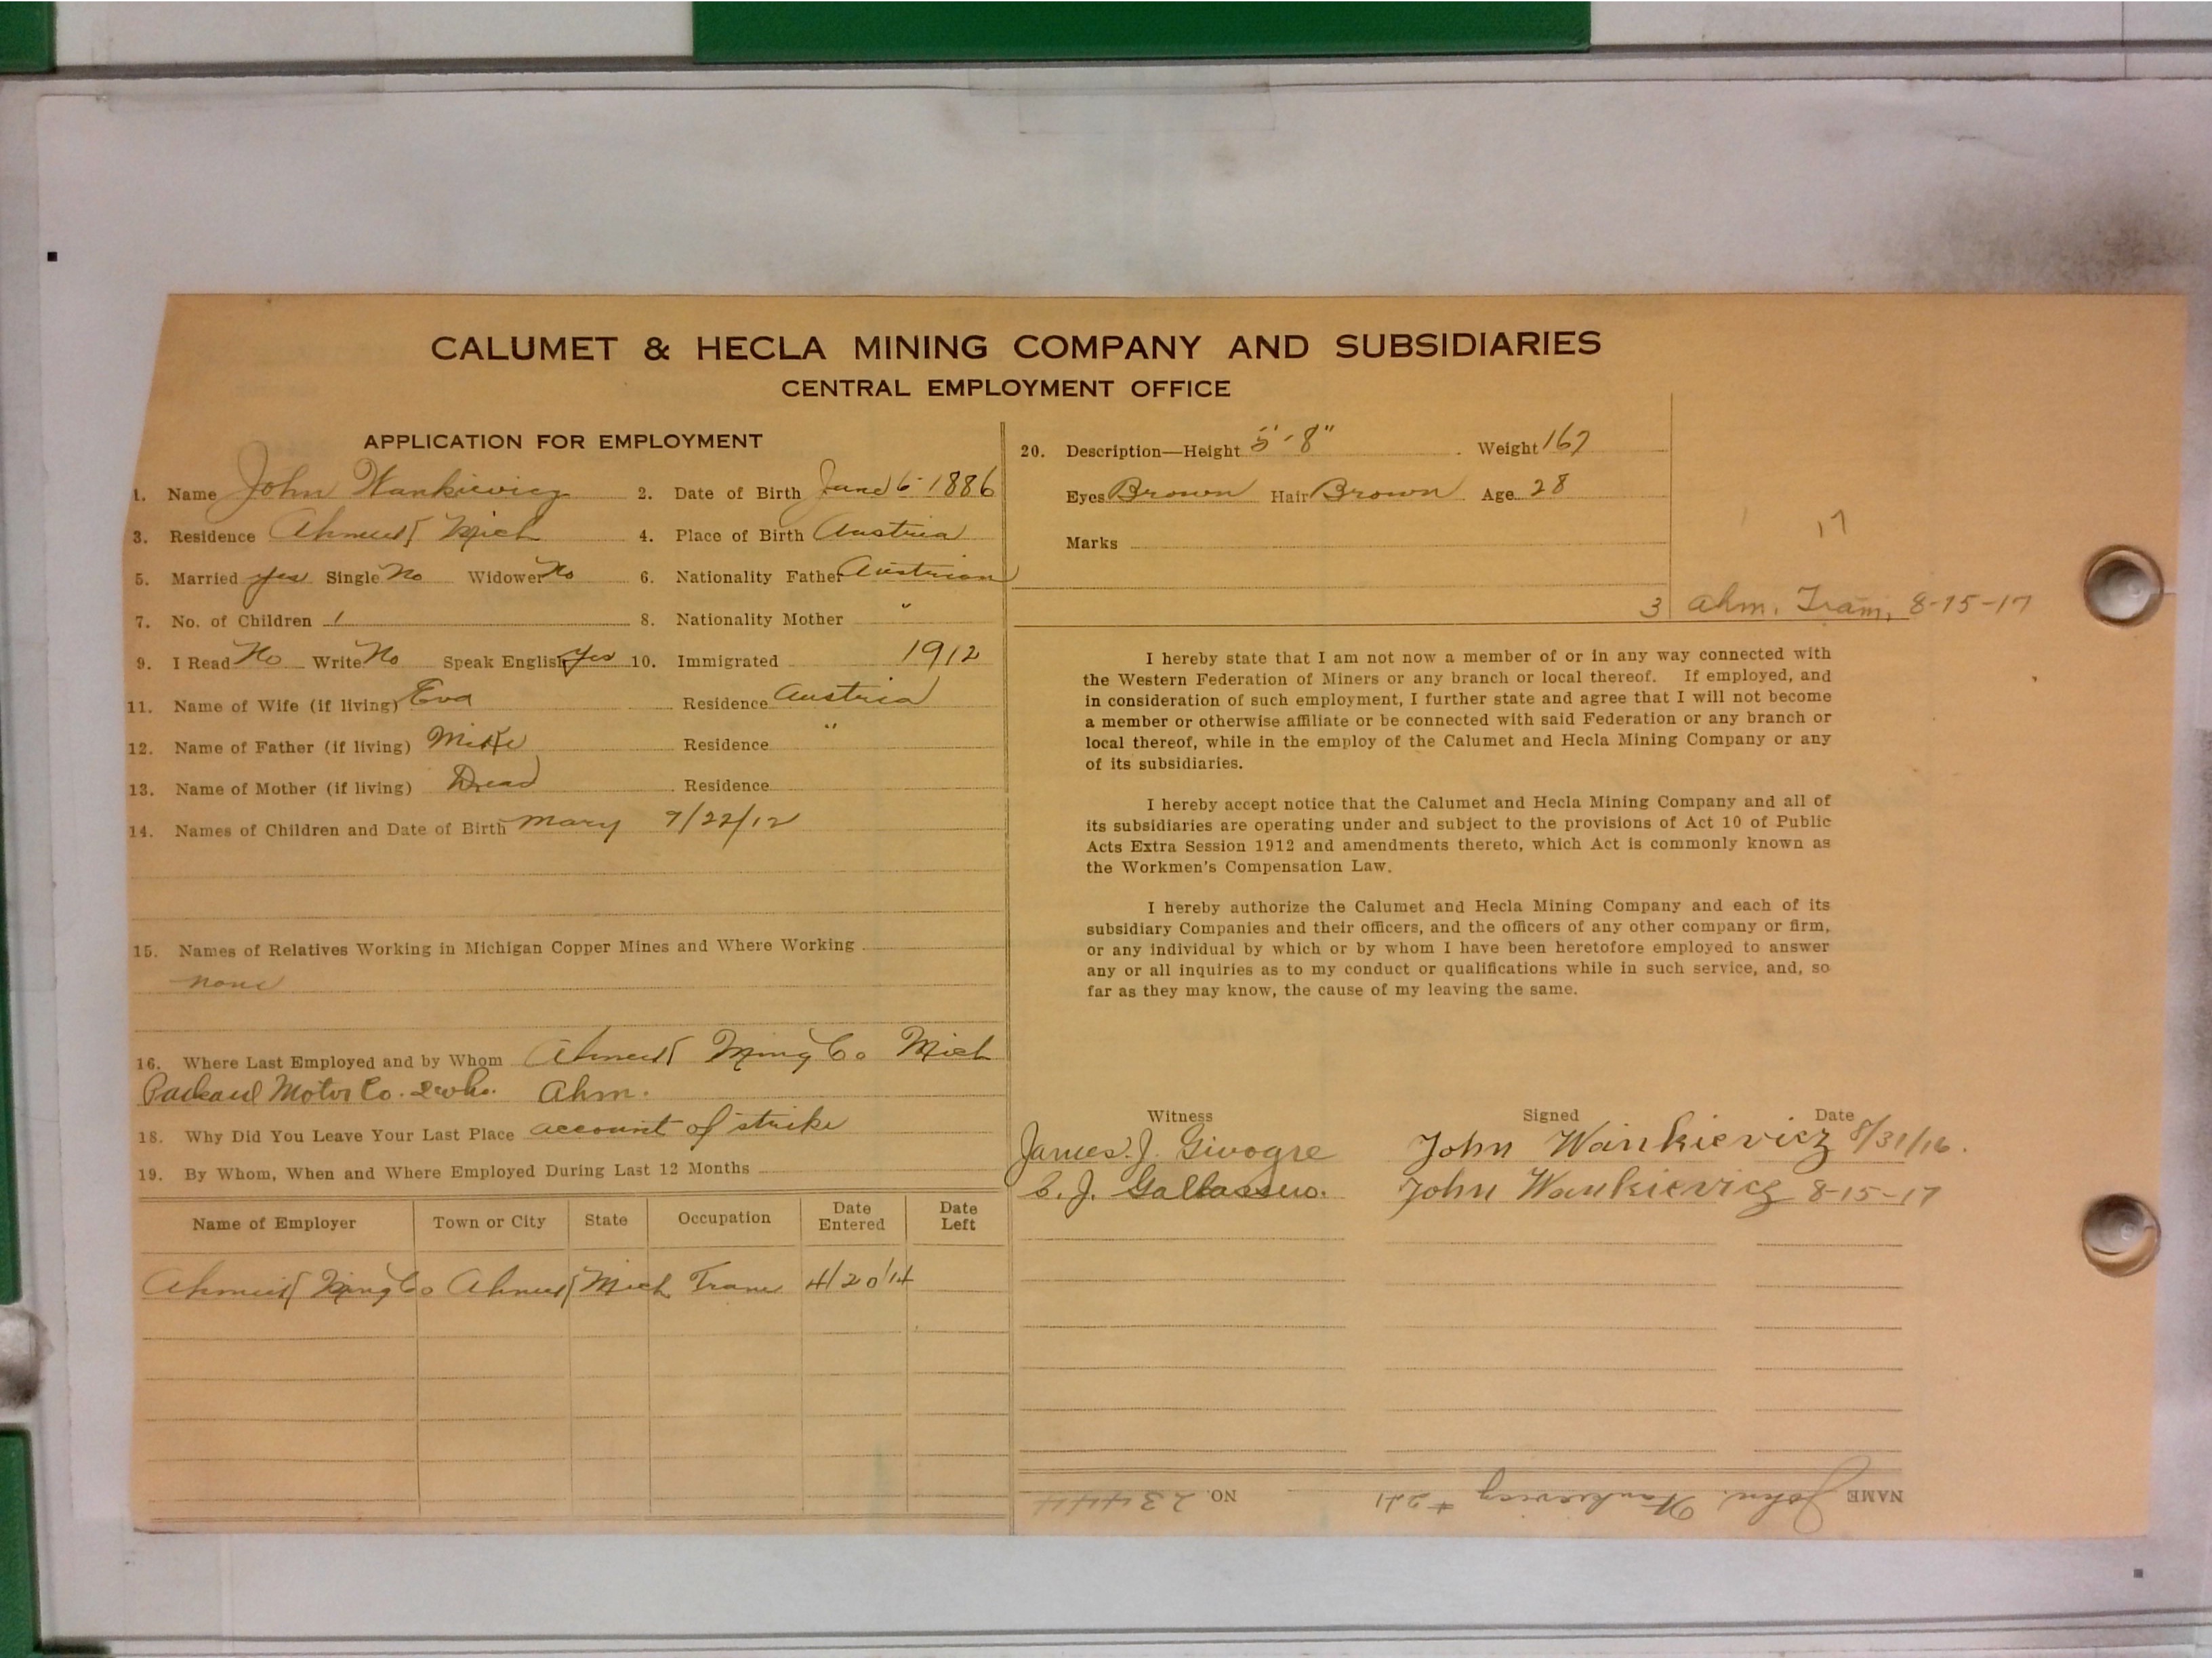 CALUMET & HECLA MINING COMPANY AND SUBSIDIARIES
CENTRAL EMPLOYMENT OFFICE
APPLICATION FOR EMPLOYMENT
1. Name John Wankievicz 2. Date of Birth June 6-1886
3. Residence Ahmeek Mich 4. Place of Birth Austria
5. Married yes Single No Widower No 6. Nationality Father Austrian
7. No. of Children 1 8. Nationality Mother "
9. I Read No Write No Speak English Yes 10. Immigrated 1912
11. Name of Wife (if living) Eva Residence Austria
12. Name of Father (if living) Mike Residence "
13. Name of Mother (if living) Dead Residence
14. Names of Children and Date of Birth Mary 7/22/12
15. Names of Relatives Working in Michigan Copper Mines and Where Working
none
16. Where Last Employed and by Whom Ahmeek Ming Co Mich
Packard Motor Co. 2 wks. Ahm.
18. Why Did You Leave Your Last Place account of strike
19. By Whom, When and Where Employed During Last 12 Months
Name of Employer Town or City State Occupation Date Entered Date Left
Ahmeek Ming Co Ahmeek Mich Tram 4/20/14
20. Description—Height 5'-8" Weight 167
Eyes Brown Hair Brown Age 28
Marks
17
3 Ahm. Tram, 8-15-17
I hereby state that I am not now a member of or in any way connected with
the Western Federation of Miners or any branch or local thereof. If employed, and
in consideration of such employment, I further state and agree that I will not become
a member or otherwise affiliate or be connected with said Federation or any branch or
local thereof, while in the employ of the Calumet and Hecla Mining Company or any
of its subsidiaries.
I hereby accept notice that the Calumet and Hecla Mining Company and all of
its subsidiaries are operating under and subject to the provisions of Act 10 of Public
Acts Extra Session 1912 and amendments thereto, which Act is commonly known as
the Workmen's Compensation Law.
I hereby authorize the Calumet and Hecla Mining Company and each of its
subsidiary Companies and their officers, and the officers of any other company or firm,
or any individual by which or by whom I have been heretofore employed to answer
any or all inquiries as to my conduct or qualifications while in such service, and, so
far as they may know, the cause of my leaving the same.
Witness Signed Date
James. J. Givogre John Wankievicz 8/31/16.
C. J. John Wankievicz 8-15-17
NAME John Wankievicz NO. 23444